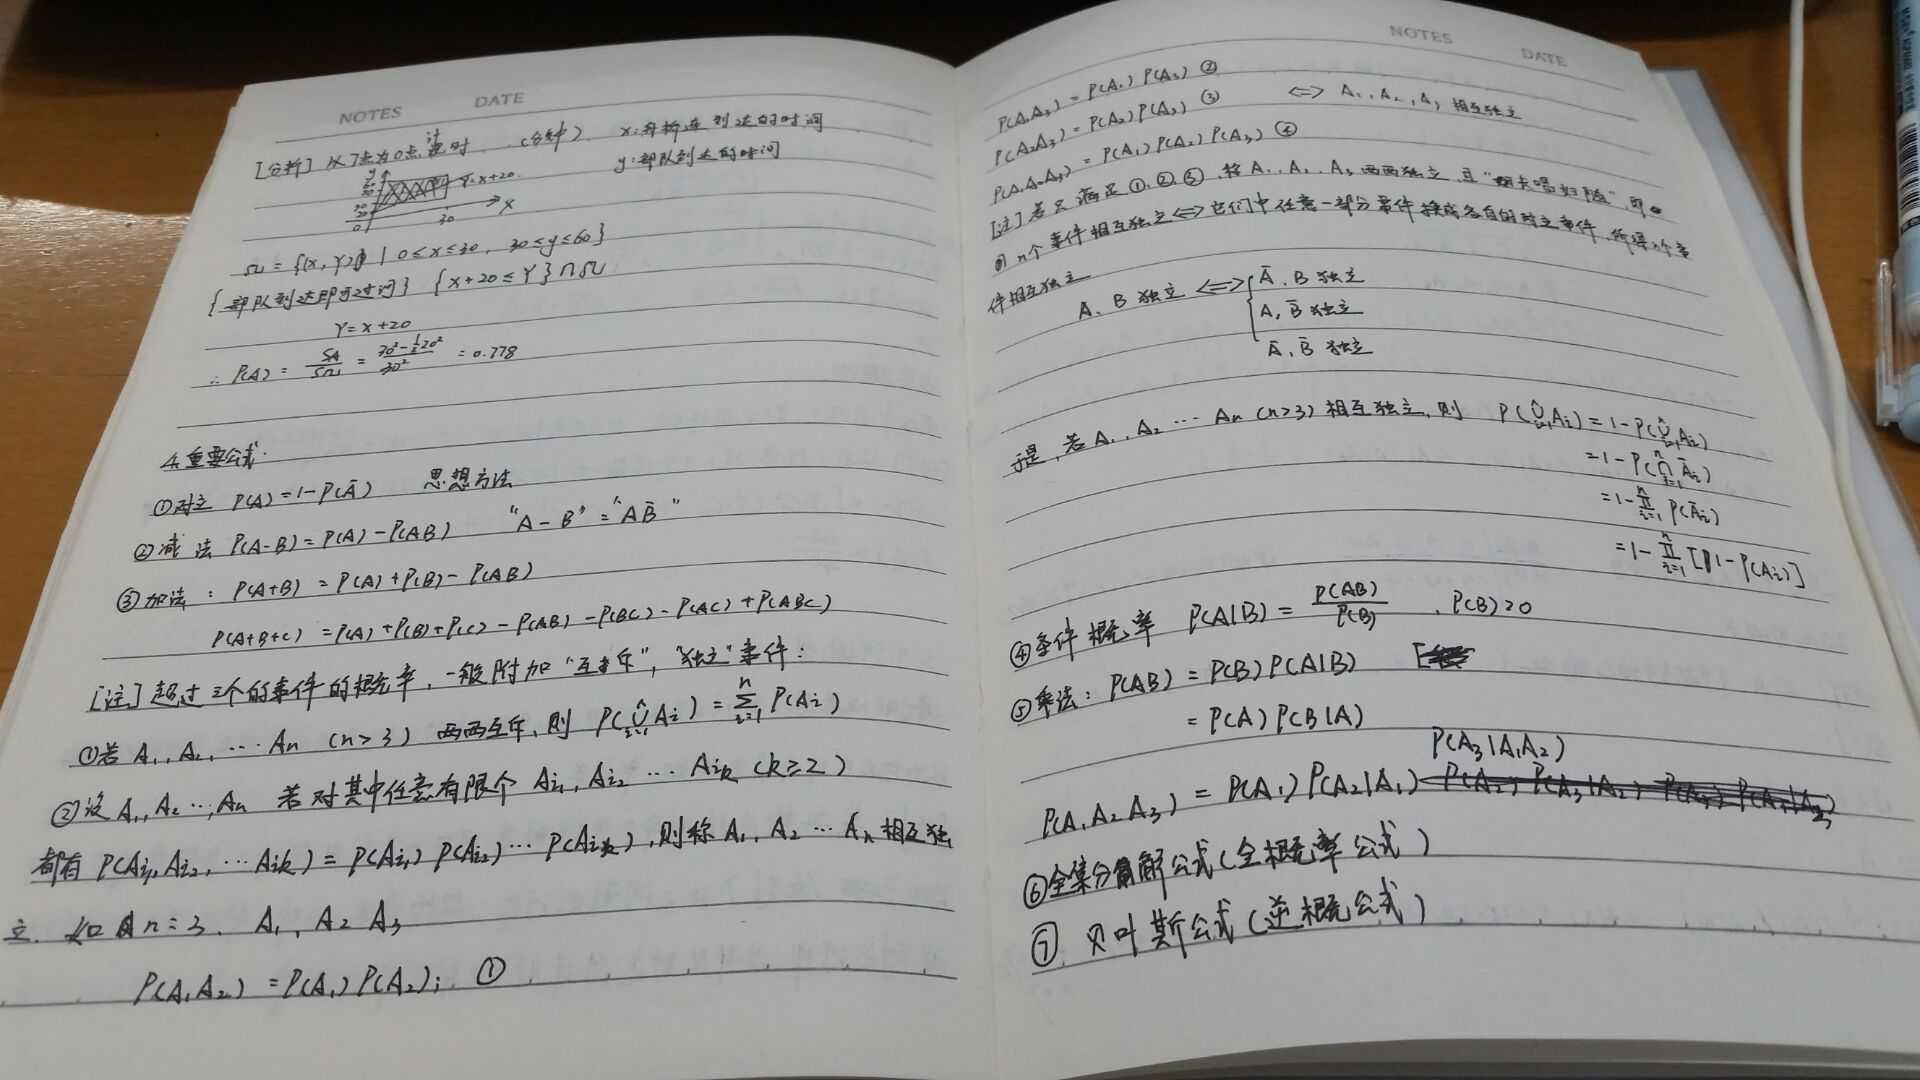 NOTES DATE
[分析] 以7点为0点计时 (分钟) x:侦拆连到达的时间
y:部队到达的时间
y
Y=x+20
30
X
0
Ω = {(x, Y) | 0≤x≤30, 30≤y≤60}
{部队到达即可过河} {x+20≤Y}∩Ω
Y=x+20
∴ P(A) = SA/SΩ = (30²-½20²)/30² = 0.778
4.重要公式:
①对立 P(A)=1-P(Ā) 思想方法
②减法 P(A-B)=P(A)-P(AB) “A-B”=“AB̄”
③加法: P(A+B) = P(A)+P(B)-P(AB)
P(A+B+C) = P(A)+P(B)+P(C)-P(AB)-P(BC)-P(AC)+P(ABC)
[注] 超过三个的事件的概率,一般附加“互斥”,“独立”事件:
①若 A₁, A₂, … An (n>3) 两两互斥,则 P(⋃ⁿᵢ₌₁Aᵢ) = ∑ⁿᵢ₌₁ P(Aᵢ)
②设 A₁, A₂ …, An 若对其中任意有限个 Ai₁, Ai₂ … Aik (k≥2)
都有 P(Ai₁, Ai₂, … Aik) = P(Ai₁) P(Ai₂) … P(Aik), 则称 A₁, A₂ … An 相互独
立. 如 n=3, A₁, A₂ A₃
P(A₁A₂) = P(A₁) P(A₂); ①
NOTES DATE
P(A₁A₃) = P(A₁) P(A₃) ②
P(A₂A₃) = P(A₂) P(A₃) ③ ⟺ A₁, A₂, A₃ 相互独立
P(A₁A₂A₃) = P(A₁) P(A₂) P(A₃) ④
[注] 若只满足①,②,③,称 A₁, A₂, A₃ 两两独立, 且“夫唱妇随”, 即
n个事件相互独立⟺它们中任意一部分事件换成各自的对立事件,所得n个事
件相互独立
A, B 独立 ⟺ { Ā, B 独立
A, B̄ 独立
Ā, B̄ 独立
于是, 若 A₁, A₂ … An (n>3) 相互独立, 则 P(⋃ⁿᵢ₌₁Aᵢ) = 1-P(⋃ⁿᵢ₌₁Aᵢ)
=1-P(⋂ⁿᵢ₌₁Āᵢ)
=1-∏ⁿᵢ₌₁ P(Āᵢ)
=1-∏ⁿᵢ₌₁ [1-P(Aᵢ)]
④条件概率 P(A|B) = P(AB)/P(B), P(B)>0
⑤乘法: P(AB) = P(B) P(A|B)
= P(A) P(B|A)
P(A₃|A₁A₂)
P(A₁A₂A₃) = P(A₁) P(A₂|A₁)
⑥全集分解公式(全概率公式)
⑦ 贝叶斯公式(逆概公式)